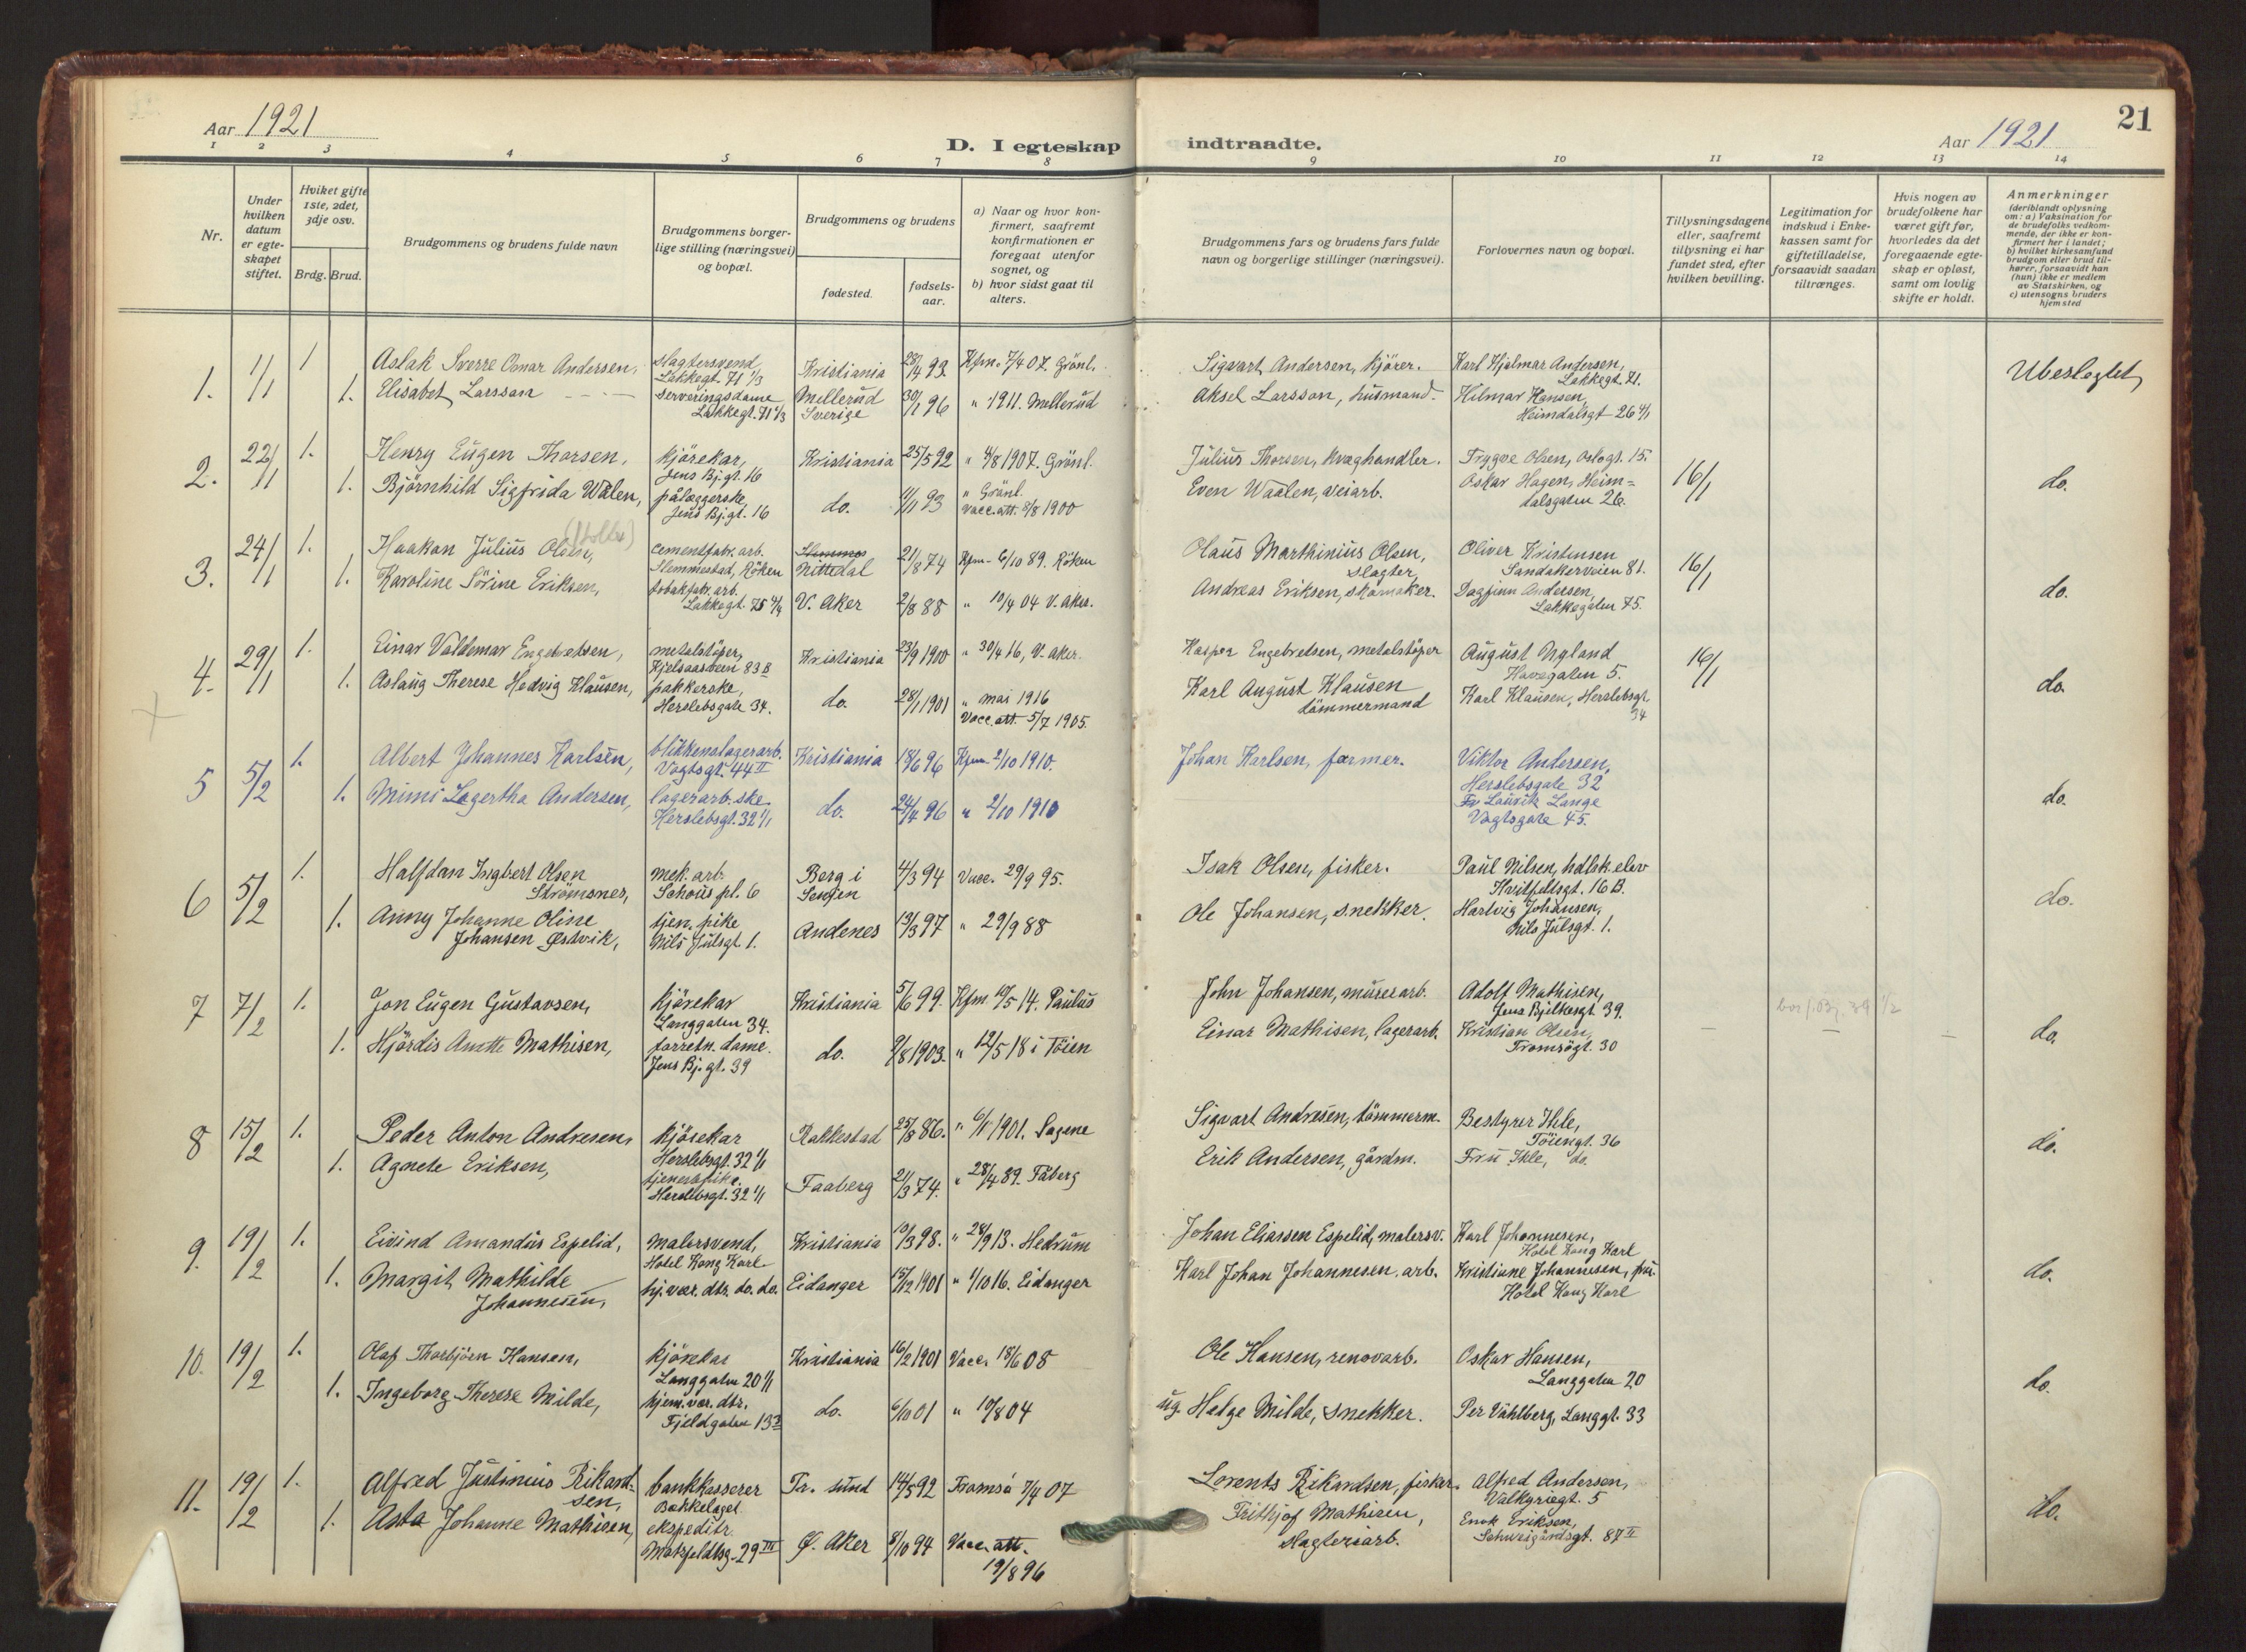 Aar 1921
D. I egteskap indtraadte.
Aar 1921
21
1 2 3 4 5 6 7 8 9 10 11 12 13 14
Nr.
Under hvilken datum er egteskapet stiftet.
Hviket gifte 1ste, 2det, 3dje osv.
Brdg. Brud.
Brudgommens og brudens fulde navn
Brudgommens borgerlige stilling (næringsvei) og bopæl.
Brudgommens og brudens
fødested. fødselsaar.
a) Naar og hvor konfirmert, saafremt konfirmationen er foregaat utenfor sognet, og
b) hvor sidst gaat til alters.
Brudgommens fars og brudens fars fulde navn og borgerlige stillinger (næringsvei).
Forlovernes navn og bopæl.
Tillysningsdagene eller, saafremt tillysning ei har fundet sted, efter hvilken bevilling.
Legitimation for indskud i Enkekassen samt for giftetilladelse, forsaavidt saadan tiltrænges.
Hvis nogen av brudefolkene har været gift før, hvorledes da det foregaaende egteskap er opløst, samt om lovlig skifte er holdt.
Anmerkninger
(deriblandt oplysning om: a) Vaksination for de brudefolks vedkommende, der ikke er konfirmert her i landet; b) hvilket kirkesamfund brudgom eller brud tilhører, forsaavidt han (hun) ikke er medlem av Statskirken, og c) utensogns bruders hjemsted
1. 1/1 1 Aslak Sverre Omar Andersen, slagtersvend Lakkegt. 71 1/3 Kristiania 28/4 93 Kfm. 7/4 07. Grönl. Sigvart Andersen, kjörer. Karl Hjalmar Andersen, Lakkegt. 71. Ubeslegtet
1. Elisabet Larsson serveringsdame Lakkegt. 71 1/3 Mellerud Sverige 30/1 96 " 1911. Mellerud Aksel Larsson, husmand. Hilmar Hansen, Heimdalsgt 26 4/1
2. 22/1 1. Henry Eugen Thorsen, kjörekar, Jens Bj. gt. 16 Kristiania 25/5 92 " 4/8 1907. Grönl. Julius Thorsen, kvæghandler. Trygve Olsen, Oslogt. 15. 16/1 do.
1. Björnhild Sigfrida Walen, pålæggerske, Jens Bj. gt. 16 do. 11/1 93 " Grönl. Vacc. att. 8/8 1900 Even Waalen, veiarb. Oskar Hagen, Heimdalsgaten 26.
3. 24/1 1. Haakon Julius Olsen, cementfabr. arb. Slemmestad, Röken Nittedal 21/8 74 Kfm. 6/10 89. Röken Olaus Marthinius Olsen, slagter Oliver Kristensen Sandakerveien 81. 16/1 do.
1. Karoline Sörine Eriksen, tobakfabr. arb. Lakkegt. 75 4/4 V. Aker 2/8 88 " 10/4 04 V. Aker. Andreas Eriksen, skomaker. Dagfinn Andersen, Lakkegaten 75.
4. 29/1 1. Einar Valdemar Engebretsen, metalstöper, Kjelsaasveien 83 B Kristiania 23/9 1900 " 30/4 16, V. Aker. Kasper Engebretsen, metalstöper August Nyland Havegaten 5. 16/1 do.
1. Aslaug Therese Hedvig Klausen, pakkerske, Herslebsgate 34. do. 28/1 1901 " mai 1916 Vacc. att. 5/7 1905. Karl August Klausen tömmermand Karl Klausen, Herslebsgt. 34
5 5/2 1. Albert Johannes Karlsen, blikkenslagerarb. Vogtsgt. 44 II Kristiania 18/6 96 Kfm. 2/10 1910. Johan Karlsen, farmer. Viktor Andersen, Herslebsgate 32 do.
1. Mimi Lagertha Andersen, lagerarb.ske. Herslebsgt. 32 1/1 do. 24/4 96 " 2/10 1910 Fr Lange Vogtsgate 45.
6 5/2 1. Halfdan Ingbert Olsen Strömsnes, mek. arb. Schous pl. 6 Berg i Senjen 4/3 94 Vacc. 29/9 95. Isak Olsen, fisker. Paul Nilsen, hdlsk. elev Hvitfeldsgt. 16 B. do.
1. Anny Johanne Oline Johansen Østvik, tjen. pike Nils Julsgt 1. Andenes 13/3 97 " 29/9 88 Ole Johansen, snekker. Hartvig Johansen, Nils Julsgt. 1.
7 7/2 1. Jon Eugen Gustavsen, kjörekar Langgaten 34. Kristiania 5/6 99. Kfm. 10/5 14. Paulus John Johansen, murerarb. Adolf Mathisen, Jens Bjelkesgt. 39. do.
1. Hjördis Anette Mathisen, forretn. dame. Jens Bj. gt. 39 do. 9/8 1903. " 12/5 18 i Töien Einar Mathisen, lagerarb. Kristian Olsen, Tromsögt. 30
8 15/2 1. Peder Anton Andresen, kjörekar Herslebsgt. 32 1/1 Rakkestad 25/8 86. " 6/1 1901. Sagene Sigvart Andresen, tömmerm. Bestyrer Ihle, Töiengt. 36 do.
1. Agnete Eriksen, tjenestpike. Herslebsgt. 32 1/1 Faaberg 21/3 74. " 28/4 89. Fåberg Erik Andersen, gårdm. Fru Ihle, do.
9. 19/2 1. Eivind Amandus Espelid, malersvend, Hotel Kong Karl Kristiania 10/3 98. " 28/9 13. Hedrum Johan Eliassen Espelid, malersv. Karl Johannesen, Hotel Kong Karl do.
1. Margit Mathilde Johannesen, hj. vær. dtr. do. do. Eidanger 15/12 1901 " 1/10 16. Eidanger Karl Johan Johannesen. arb. Kristiane Johannesen, fru. Hotel Kong Karl
10. 19/2 1. Olaf Thorbjörn Hansen, kjörekar Langgaten 20 1/1 Kristiania 16/2 1901 Vacc. 18/6 08 Ole Hansen, renovarb. Oskar Hansen, Langgaten 20 do.
1. Ingeborg Therese Milde, hjem.vær. dtr. Fjeldgaten 13 do. 6/10 01 " 10/8 04 ug. Helge Milde, snekker. Per Våhlberg, Langgt. 33
11. 19/2 1. Alfred Justinius Rikardsen, bankkasserer Bækkelaget Tr. sund 14/5 92 Tromsö 7/4 07 Lorents Rikardsen, fisker. Alfred Andersen, Valkyriegt. 5 do.
1. Asta Johanne Mathisen, ekspeditr. Motzfeldtsg. 29 III Ø. Aker 8/10 94 Vacc. att. 19/8 96 Frithjof Mathisen, slagteriarb. Enok Eriksen, Schweigårdsgt. 87 II